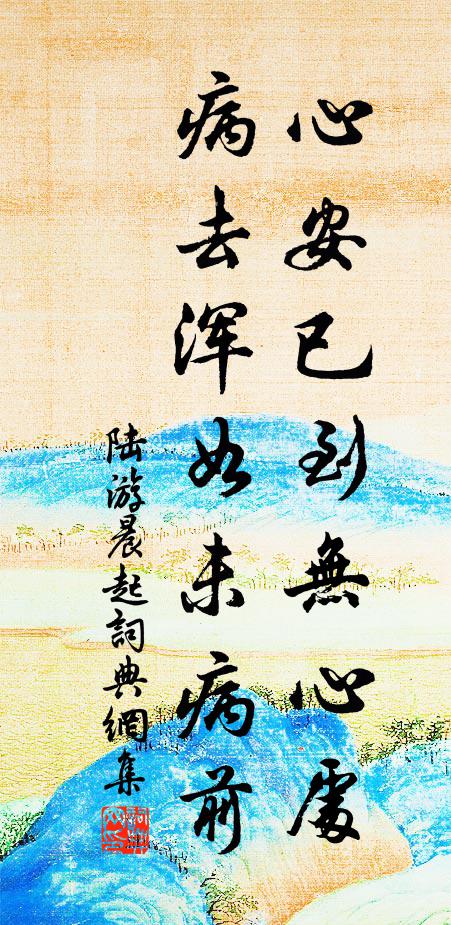 心安已到無心處
病去浑如未病前
陆游晨起詞典網集